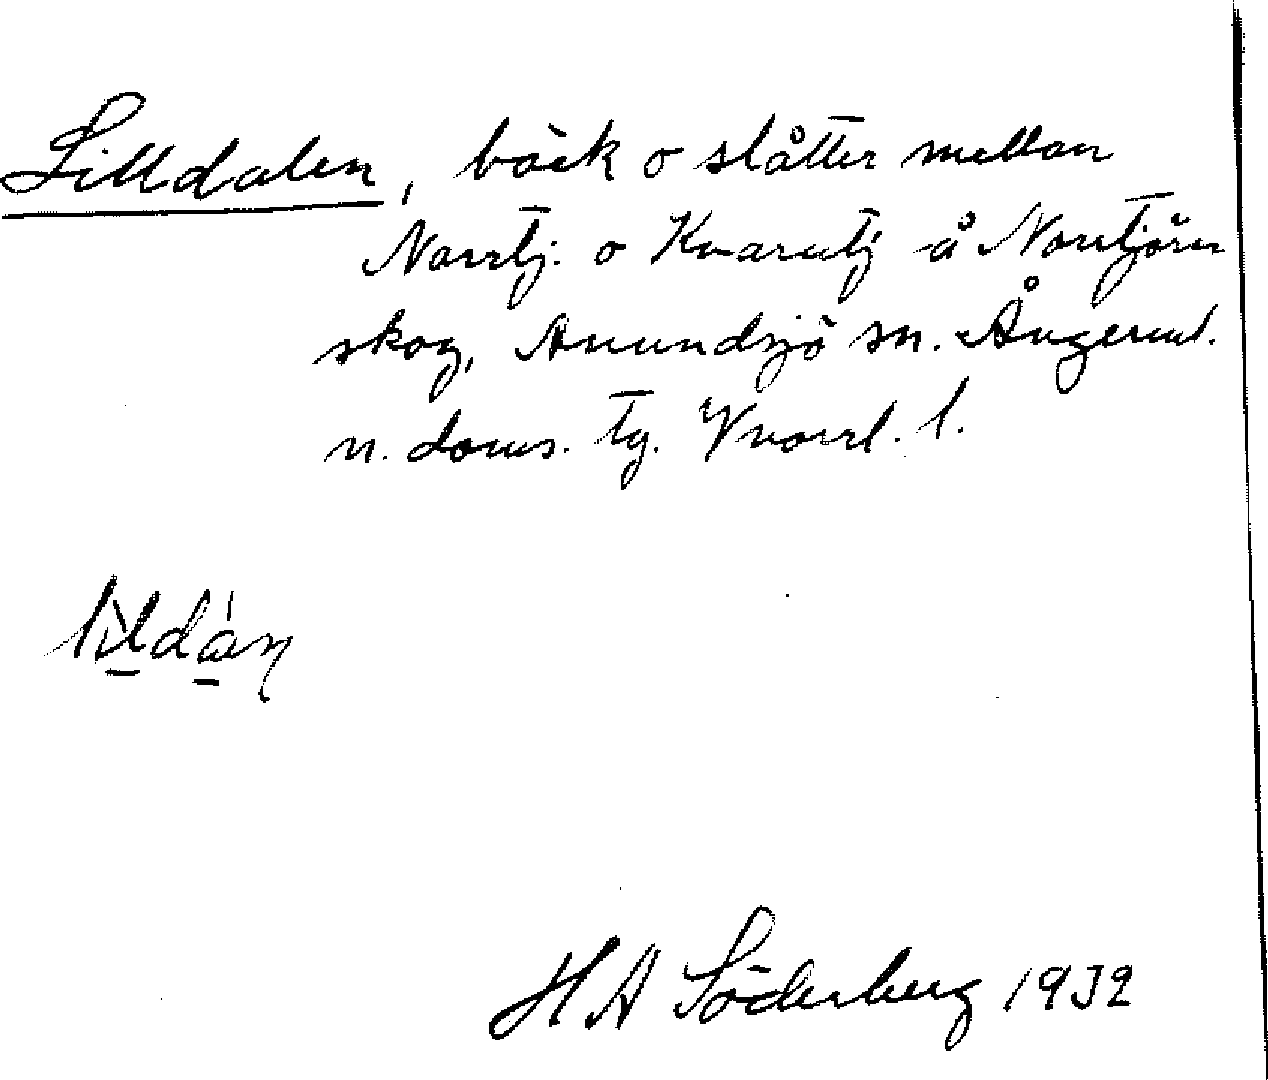 Lilldalen, bäck o slåtter mellan
Norrtj. o Kvarntj å Norrtjärn
skog, Anundsjö sn. Ångerml.
n. doms. tg. Vnorrl. l.
H A Söderberg 1932